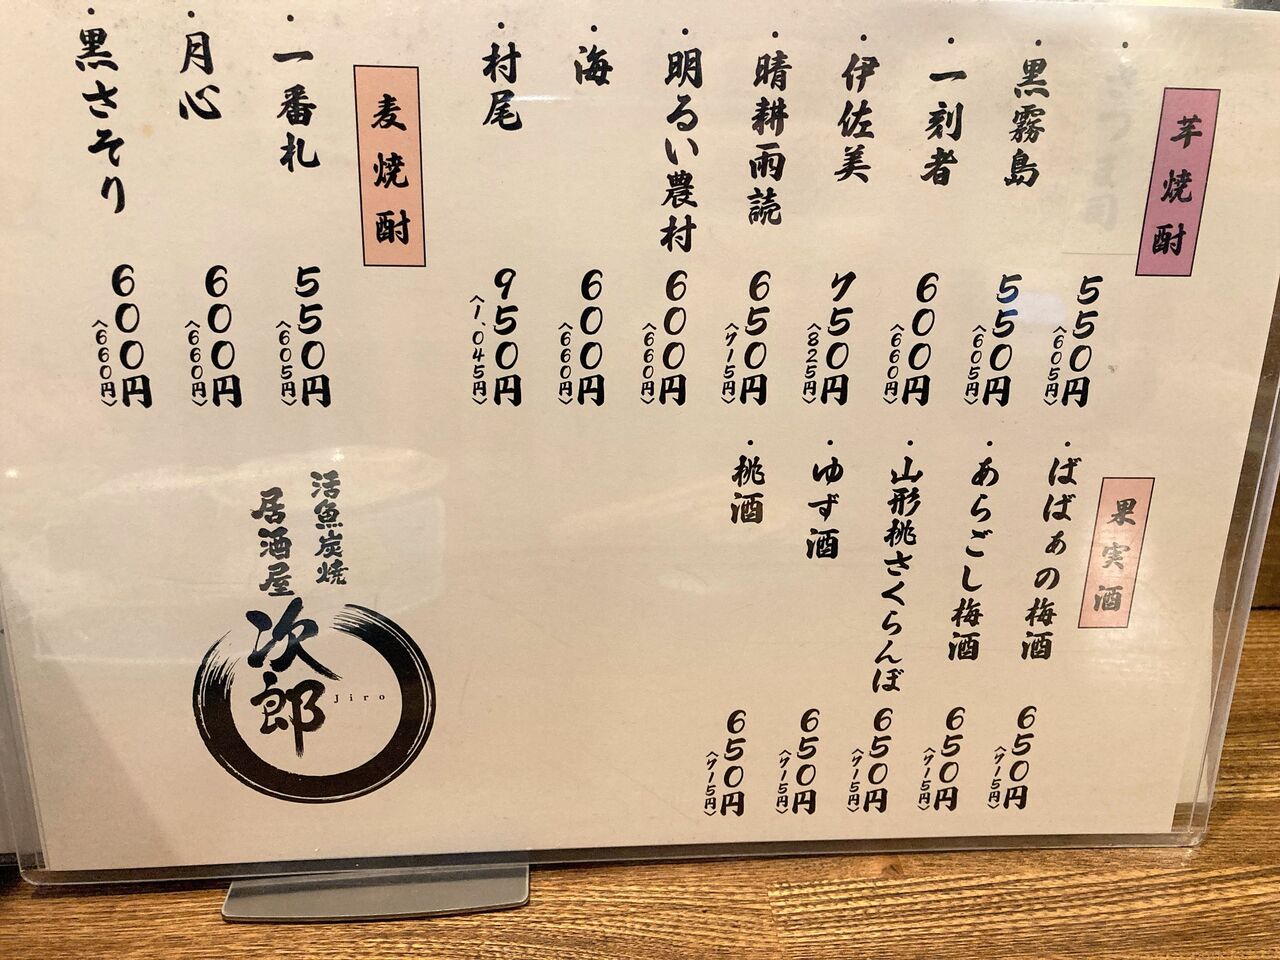 芋焼酎
550円
〈605円〉
・黒霧島
550円
〈605円〉
・一刻者
600円
〈660円〉
・伊佐美
750円
〈825円〉
・晴耕雨読
650円
〈715円〉
・明るい農村
600円
〈660円〉
・海
600円
〈660円〉
・村尾
950円
〈1,045円〉
麦焼酎
・一番札
550円
〈605円〉
・月心
600円
〈660円〉
・黒さそり
600円
〈660円〉
果実酒
・ばばぁの梅酒
650円
〈715円〉
・あらごし梅酒
650円
〈715円〉
・山形桃さくらんぼ
650円
〈715円〉
・ゆず酒
650円
〈715円〉
・桃酒
650円
〈715円〉
活魚炭焼
居酒屋
次郎
Jiro